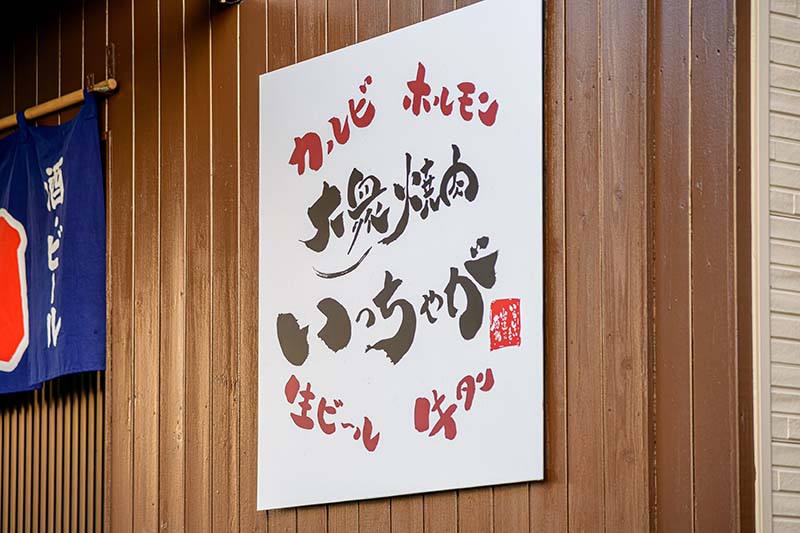 カルビ ホルモン
大衆焼肉
いっちゃが
生ビール 牛タン
酒・ビール